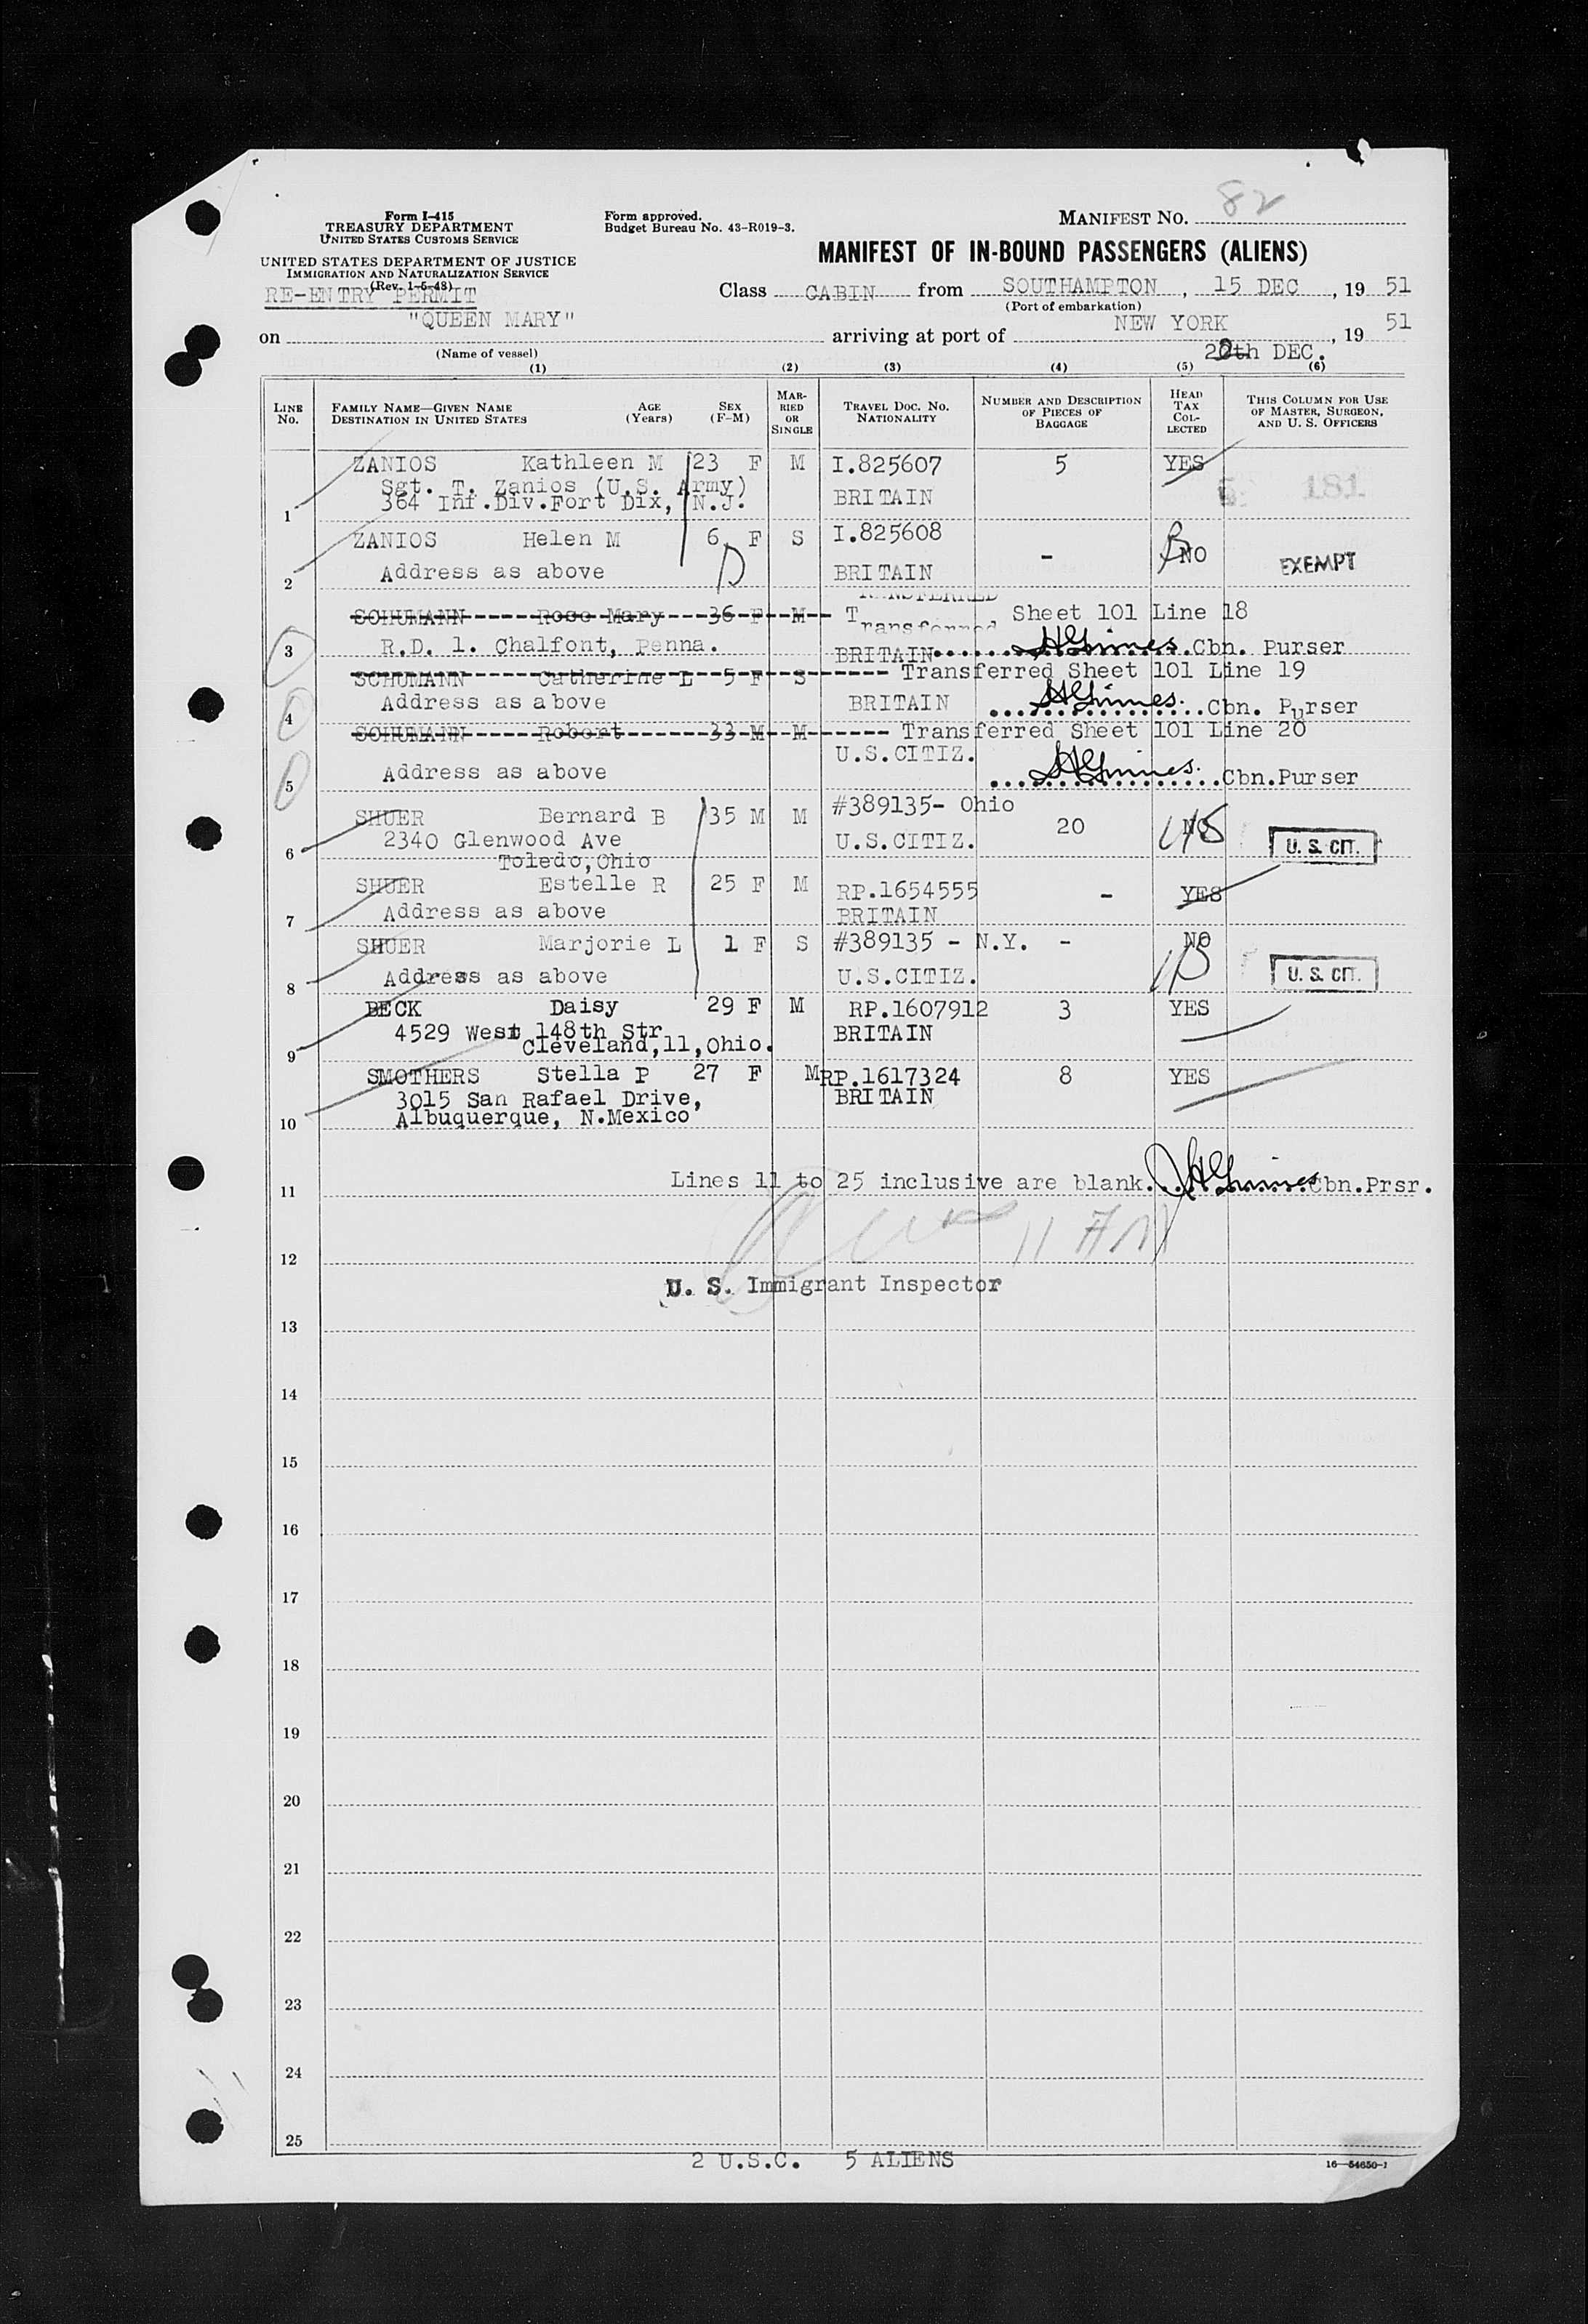 82
Form I-415
TREASURY DEPARTMENT
UNITED STATES CUSTOMS SERVICE
Form approved.
Budget Bureau No. 43-R019-3.
MANIFEST NO.
MANIFEST OF IN-BOUND PASSENGERS (ALIENS)
UNITED STATES DEPARTMENT OF JUSTICE
IMMIGRATION AND NATURALIZATION SERVICE
(Rev. 1-5-48)
RE-ENTRY PERMIT
Class CABIN from SOUTHAMPTON, 15 DEC, 19 51
(Port of embarkation)
on "QUEEN MARY" arriving at port of NEW YORK, 19 51
(Name of vessel)
DEC.
(1) (2) (3) (4) (5) (6)
LINE No. FAMILY NAME—GIVEN NAME DESTINATION IN UNITED STATES AGE (Years) SEX (F-M) MARRIED OR SINGLE TRAVEL DOC. NO. NATIONALITY NUMBER AND DESCRIPTION OF PIECES OF BAGGAGE HEAD TAX COLLECTED THIS COLUMN FOR USE OF MASTER, SURGEON, AND U. S. OFFICERS
ZANIOS Kathleen M 23 F M I.825607 5 YES
Sgt. T. Zanios (U.S. Army)
181
1 364 Inf.Div.Fort Dix, N.J. BRITAIN
ZANIOS Helen M 6 F S I.825608 - NO EXEMPT
2 Address as above BRITAIN
SCHUMANN Rose Mary 36 F M T Transferred Sheet 101 Line 18
3 R.D. 1. Chalfont, Penna. BRITAIN Cbn. Purser
SCHUMANN Catherine L 5 F S Transferred Sheet 101 Line 19
4 Address as above BRITAIN Cbn. Purser
SCHUMANN Robert 33 M M Transferred Sheet 101 Line 20
U.S.CITIZ.
5 Address as above Cbn.Purser
SHUER Bernard B 35 M M #389135- Ohio 20 NO
6 2340 Glenwood Ave U.S.CITIZ. U. S. CIT.
Toledo,Ohio
SHUER Estelle R 25 F M RP.1654555 - YES
7 Address as above BRITAIN
SHUER Marjorie L 1 F S #389135 - N.Y. - NO
8 Address as above U.S.CITIZ. U. S. CIT.
BECK Daisy 29 F M RP.1607912 3 YES
4529 West 148th Str BRITAIN
9 Cleveland,11,Ohio.
SMOTHERS Stella P 27 F M RP.1617324 8 YES
3015 San Rafael Drive, BRITAIN
10 Albuquerque, N.Mexico
11 Lines 11 to 25 inclusive are blank. Cbn.Prsr.
12
U. S. Immigrant Inspector
13
14
15
16
17
18
19
20
21
22
23
24
25
2 U.S.C. 5 ALIENS
16—54650-1